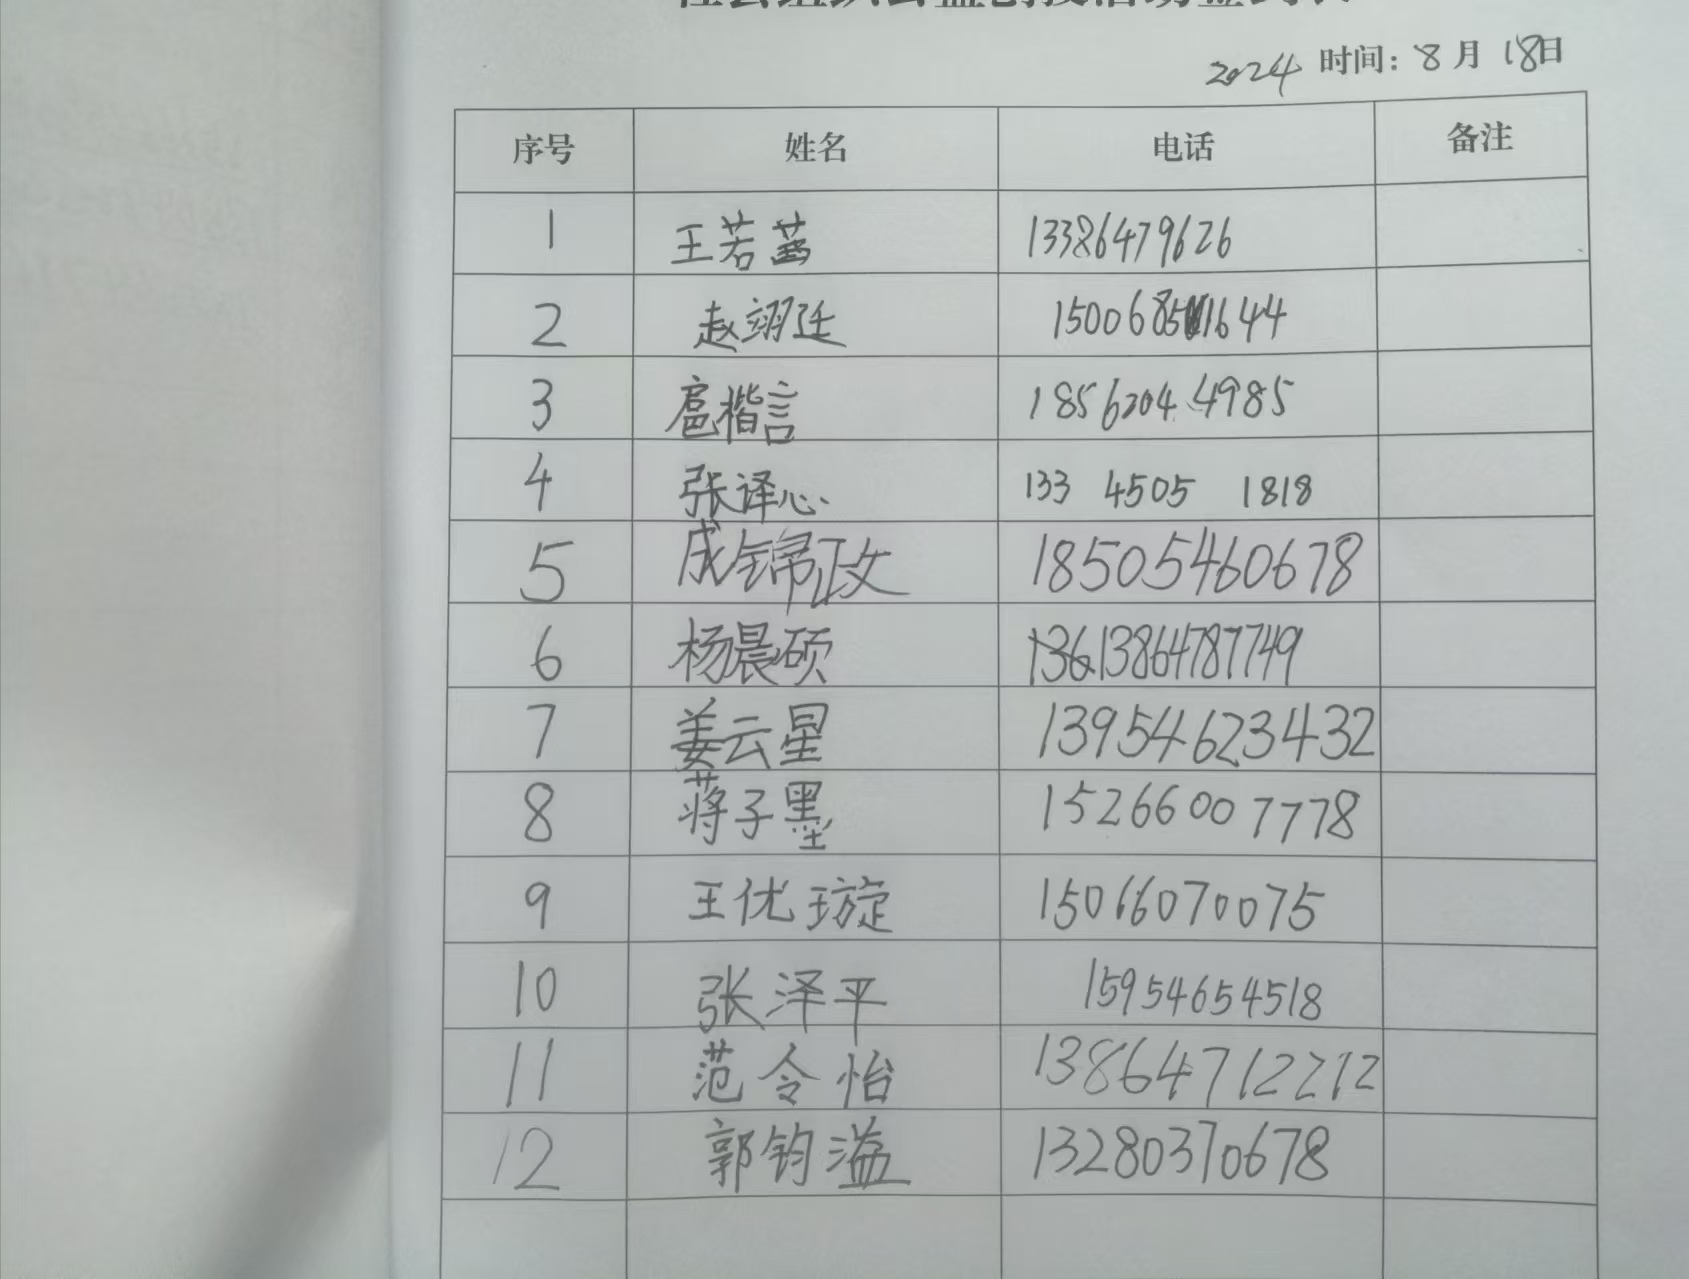 社会组织公益创投活动签到表
2024 时间：8月18日
序号 姓名 电话 备注
1 王若菡 13386479626
2 赵翊廷 15006851644
3 扈楷言 18562044985
4 张译心 133 4505 1818
5 成锦政 18505460678
6 杨晨硕 13613864787749
7 姜云星 13954623432
8 蒋子墨 15266007778
9 王优璇 15066070075
10 张泽平 15954654518
11 范令怡 13864712212
12 郭钧溢 13280370678